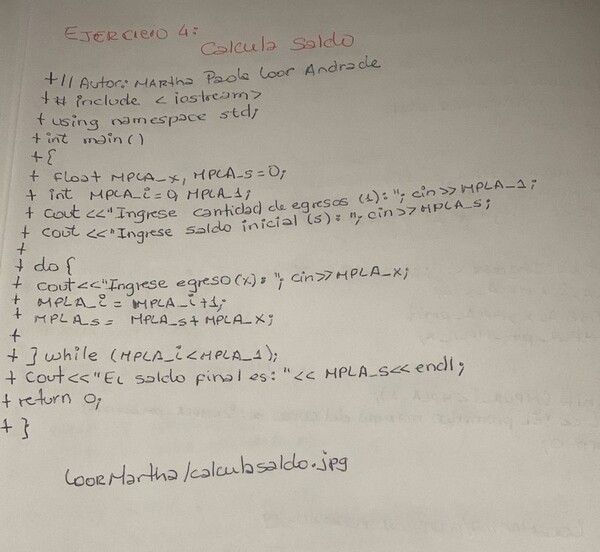 EJERCICIO 4:
Calcula Saldo
+// Autor: MARtha Paola Loor Andrade
+# include < iostream>
+ using namespace std;
+ int main()
+{
+ float MPLA_x, MPLA_s=0;
+ int MPLA_i=0, MPLA_1;
+ cout <<"Ingrese cantidad de egresos (1): "; cin>> MPLA_1;
+ cout <<"Ingrese saldo inicial (s): "; cin>>MPLA_s;
+
+ do {
+ cout<<"Ingrese egreso(x): "; cin>>MPLA_x;
+ MPLA_i = MPLA_i+1;
+ MPLA_s= MPLA_s+MPLA_x;
+
+ } while (MPLA_i<MPLA_1);
+ cout<<"El saldo final es: "<< MPLA_s<< endl;
+ return 0;
+ }
LoorMartha/calculasaldo.jpg